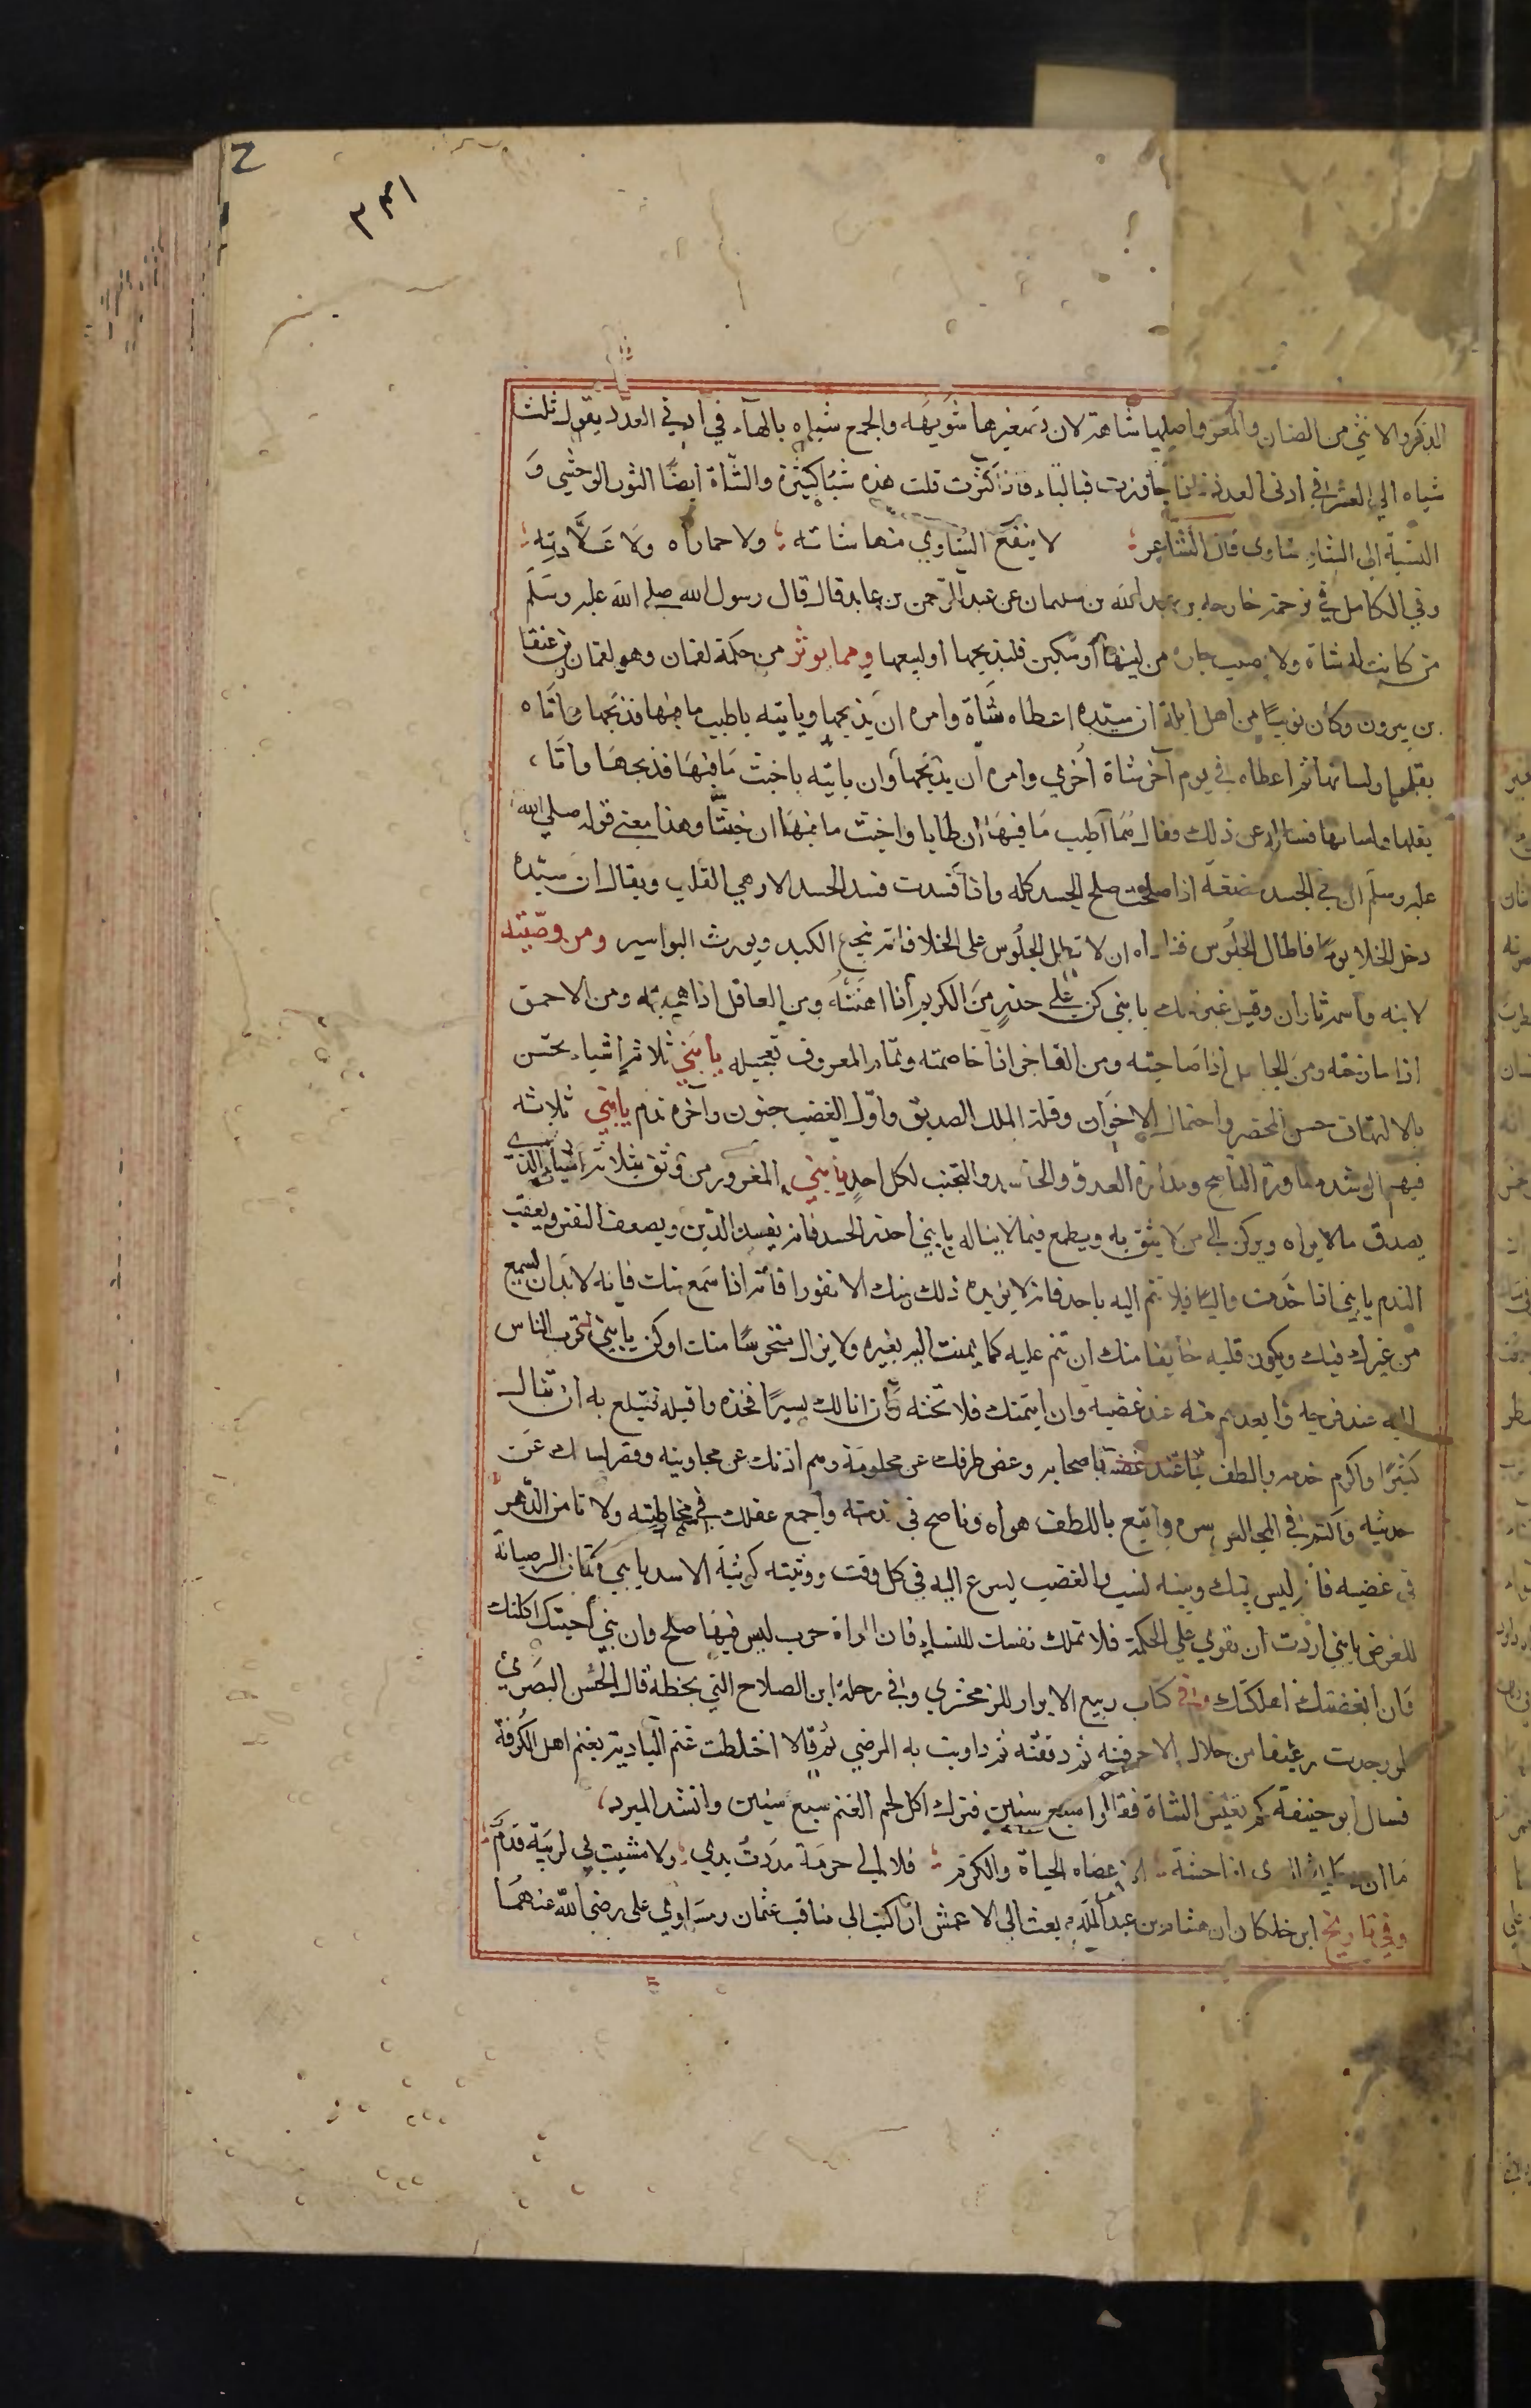 2
٣٤١
الذكر والانثي من الضان والمعز واصلها شاهة لان تصغيرها شويهه والجمع شياه بالهآء في ادني العدد يقول ثلث
شياه الي العشر في ادنى العدد فاذا جاوزت فبالتاء فاذا كثرت قلت هذه شاء كثيرة والشاة ايضا الثور الوحشي و
النسبة الى الشاء شاوى قال الشاعر لا ينفع الشاوي منها شاته ولا حماراه ولا علاته
وفي الكامل في ترجمة خارجه بن عبد الله بن سليمان عن عبد الرحمن بن عايد قال قال رسول الله صلى الله عليه وسلم
من كانت له شاة ولا يصيب جاره من لبنها او مسكين فليذبحها او ليبعها ومما يوثر من حكمة لقمان وهو لقمان بن عنقا
بن بيرون وكان نوبيا من اهل ايلة ان سيده اعطاه شاة وامره ان يذبحها وياتيه باطيب ما فيها فذبحها واتاه
بقلبها ولسانها ثم اعطاه في يوم آخر شاة اخري وامره ان يذبحها وان ياتيه باخبث ما فيها فذبحها واتاه
بقلبها ولسانها فساله عن ذلك وقال هما اطيب ما فيها ان طابا واخبث ما فيها ان خبثا وهذا معنى قوله صلي الله
عليه وسلم ان في الجسد مضغة اذا صلحت صلح الجسد كله واذا فسدت فسد الجسد الا وهي القلب ويقال ان سيده
دخل الخلا يوما فاطال الجلوس فناداه ان لا تطل الجلوس على الخلا فانه ينجع الكبد ويورث البواسير ومن وصيته
لابنه واسمه ثاران وقيل غير ذلك يا بني كن على حذر من الكريم اذا اهنته ومن العاقل اذا هجته ومن الاحمق
اذا مازحته ومن الجاهل اذا صاحبته ومن الفاجر اذا خاصمته وتمام المعروف تعجيله يا بني ثلاثة اشياء تحسن
بالانسان حسن المحضر واحتمال الاخوان وقلة الملل الصديق واول الغضب جنون وآخره ندم يا بني ثلاثه
فيهم الرشد مشاورة الناصح ومداراة العدو والحاسد والتحبب لكل احد يا بني المغرور من وثق بثلاثة اشياء الذي
يصدق ما لا يراه ويركن الى من لا يثق به ويطمع فيما لا يناله يا بني احذر الحسد فانه يفسد الدين ويضعف النفس ويعقب
الندم يا بني اذا خدمت واليا فلا تنم اليه باحد فانه لا يزيده ذلك منك الا نفورا فانه اذا سمع منك فانه لا بد ان يسمع
من غيرك فيك ويكون قلبه خايفا منك ان تنم عليه كما نممت اليه بغيره ولا يزال متحرسا منك وكن يا بني اقرب الناس
اليه عند فرحه وابعدهم منه عند غضبه وان ايتمنك فلا تخنه وان انالك يسيرا فخذه واقبله فتبلغ به ان تنال
كثيرا واكرم خدمه والطف باصحابه وغض طرفك عن محارمه وصم اذنك عن مجاوبته وقصر لسانك عن
حديثه واكتم في المجالس سره واتبع باللطف هواه وناصح في خدمته واجمع عقلك في مخاطبته ولا تامن الدهر
في غضبه فانه ليس بينك وبينه نسب والغضب يسرع اليه في كل وقت ووثبته كوثبة الاسد يا بني كتمان السر صيانة
للعرض يا بني ان اردت ان تقوي علي الحكمة فلا تملك نفسك للنساء فان المراة حرب ليس فيها صلح وان هي احبتك اكلتك
وان ابغضتك اهلكتك وفي كتاب ربيع الابرار للزمخشري وفي رحلة ابن الصلاح التي بخطه قال الحسن البصري
لو وجدت رغيفا من حلال لاحرقته ثم دققته ثم داويت به المرضي ثم قال اختلطت غنم البادية بغنم اهل الكوفة
فسال ابو حنيفة كم تعيش الشاة فقالوا سبع سنين فترك اكل لحم الغنم سبع سنين وانشد المبرد
ما ان دعاني الهوى لفاحشة الا عصاه الحياة والكرم فلا الى حرمة مددت يدي ولا مشيت بي لريبة قدم
وفي تاريخ ابن خلكان ان هشام بن عبد الملك بعث الى الاعمش ان اكتب الى مناقب عثمان ومساوي على رضي الله عنهما